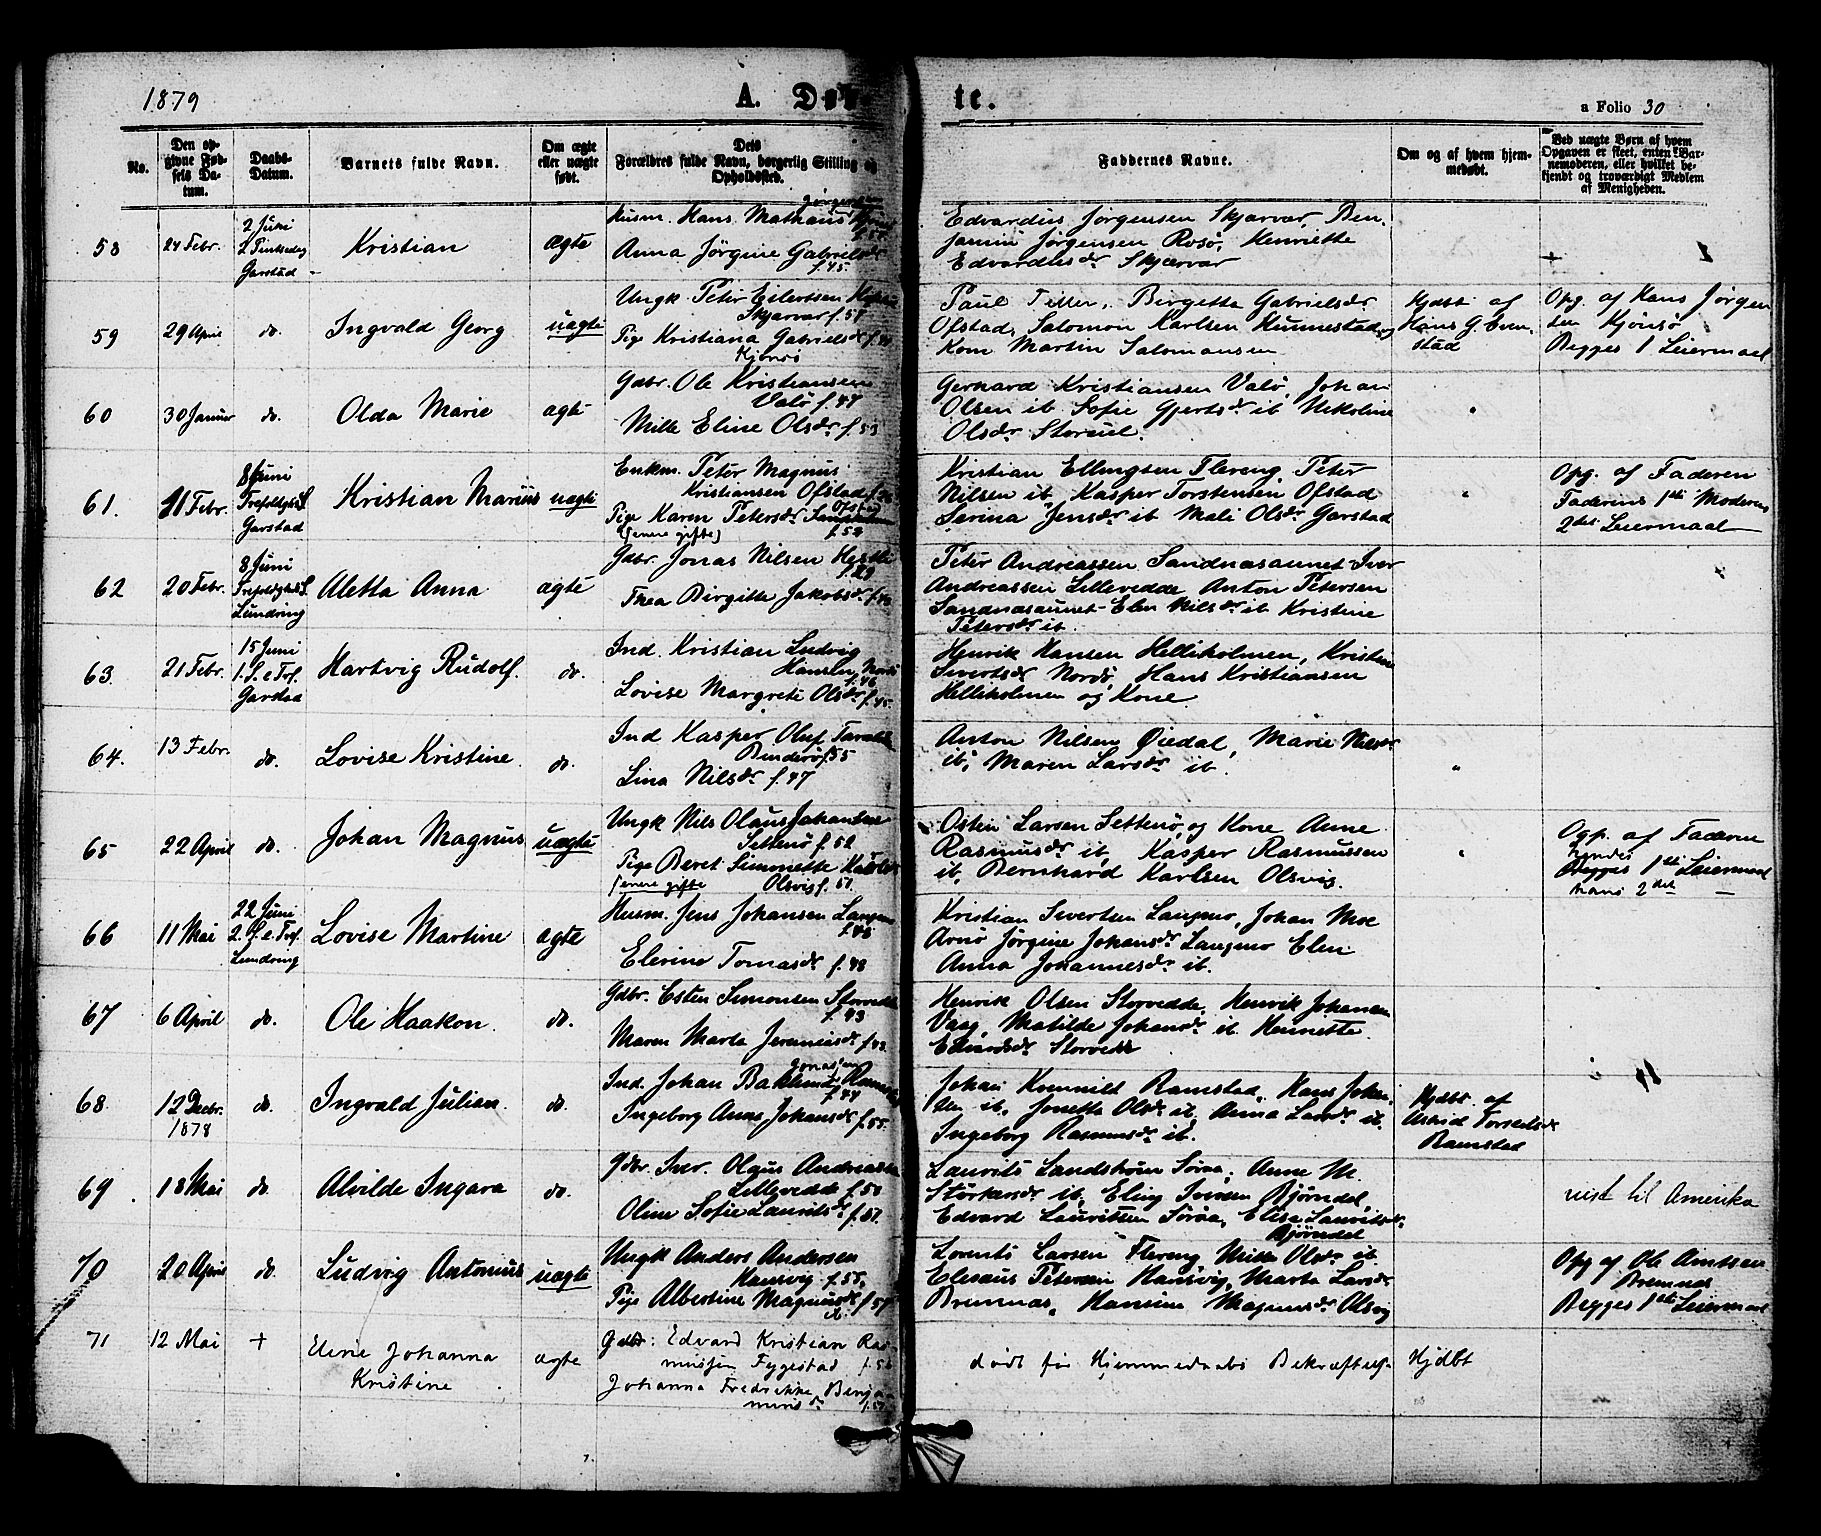 1879
A. Døb te.
a Folio 30
No.
Den op-
givne Fød-
sels Da-
tum.
Daabs-
Datum.
Barnets fulde Navn.
Om ægte
eller uægte
født.
Dets
Forældres fulde Navn, borgerlig Stilling og
Opholdssted.
Faddernes Navne.
Om og af hvem hjem-
medøbt.
Ved uægte Børn af hvem
Opgaven er skeet, enten Bar-
nemoderen, eller hvilket be-
kjendt og troværdigt Medlem
af Menigheden.
58
24 Febr.
2 Juni
2 Pintsedag
Garstad
Kristian
ægte
Husm. Hans Mathæus
Anna Jörgine Gabrielsdr
f. 45.
Edvardus Jørgensen Skjærvær, Ben-
jamin Jørgensen Rosø, Henriette
Edvardusdr Skjærvær
59
29 April
do.
Ingvald Georg
uægte
Ungk Peter Eilertsen
Skjærvær f. 58
Pige Kristiana Gabrielsdr
Kjönsö
Paul Tiller, Birgitta Gabrielsdr
Ofstad, Salomon Karlsen Hunnestad og
Kone Martin Salomonsen
Hjdbt af
Hans G. Even
stad
Opg. af Hans Jørgen
sen Kjönsö
Begges 1 Leiermaal
60
30 Januar
do.
Olda Marie
ægte
Gdbr. Ole Kristiansen
Valö f. 47
Mille Eline Olsdr f. 53
Gerhard Kristiansen Valö, Johan
Olsen ib. Sofie Gjertsdr ib Nikoline
Olsdr
61.
21 Febr.
8 Juni
Trefoldighds S.
Garstad
Kristian Marius
uægte
Enkm. Peter Magnus
Kristiansen Ofstad
Ofstad
Pige Karen Petersdr
(senere gifte)
f. 52
Kristian Ellingsen Flereng, Peter
Nilsen ib, Kasper Torstensen Ofstad
Serina Jensdr ib Mali Olsdr Garstad
Opg. af Faderen
Faderens 1ste Moderens
2det Leiermaal
62
20 Febr.
8 Juni
Trefoldighds S.
Lundring
Aletta Anna
ægte
Gdbr. Jonas Nilsen
Thea Birgitte Jakobsdr
Peter Andreassen Sandnæsaunet Iver
Andreassen Lillevedde Anton Petersen
Sandnæsaunet Elen Nilsdr ib Kristine
Petersdr ib.
63.
21 Febr.
15 Juni
1. S. e Tref.
Garstad
Hartvig Rudolf
do.
Ind. Kristian Ludvig
Hansen Nordö
f. 46
Lovise Margrete Olsdr f. 45.
Henrik Hansen Helliholmen, Kristine
Sivertsdr Nordö, Hans Kristiansen
Helliholmen og Kone.
64.
13 Febr.
do.
Lovise Kristine
do.
Ind Kasper Oluf
Binderö f. 55
Lina Nilsdr f. 47
Anton Nilsen Øiedal, Marie Nilsdr
ib, Maren Larsdr ib.
65
22 April
do.
Johan Magnus
uægte
Ungk Nils Olaus Johansen
Setternö f. 52
Pige Beret Simonette
senere gifte Olsvig f. 51.
Osten Larsen Setternö, og Kone Anne
Rasmusdr ib, Kasper Rasmussen
ib. Bernhard Karlsen Olsvig.
Opg. af Faderen
hendes
Begges 1ste Leiermaal
hans 2det
66
11 Mai
22 Juni
2. S. e Tref
Lundring
Lovise Martine
ægte
Husm. Jens Johansen
Elerine Tomasdr f. 48
Kristian Sivertsen Langmo, Johan Moe
Arnö Jørgine Johansdr Langmo Elen
Anna Johannesdr ib.
67
6 April
do.
Ole Haakon.
do.
Gdbr. Esten Simonsen Storvedde
f. 43
Maren Marta Jeremiasdr f. 43.
Henrik Olsen Storvedde, Henrik Johansen
Vaag, Matilde Johansdr ib Henriette
Edvardsdr Storvedde
68.
12 Decbr.
1878
do.
Ingvald Julian.
do.
Ind. Johan
f. 44
Ingeborg Anna Johansdr f. 55.
Johan Ramstad, Hans Johan-
sen ib. Jonetta Olsdr ib, Anna Larsdr ib.
Ingeborg Rasmusdr ib.
Hjdbt. af
Ramstad
69.
18 Mai
do.
Alvilde Ingara
do.
Gdbr. Iver Olaus Andreassen
Lillevedde f. 50
Oline Sofie Lauritsdr f. 51.
Laurits Landstrøm Søraa, Anne M.
Størkersdr ib, Eling Iversen Bjørndal,
Edvard Lauritsen Søraa, Elisa Lauritsdr.
Bjørndal
reist til Amerika
70
20 April
do.
Ludvig Antonius
uægte
Ungk Anders Andersen
Hansvig f. 55,
Pige Albertine Magnusdr f. 57
Lorents Larsen Flereng Mille Olsdr ib
Elesæus Petersen Hansvig, Marta Larsdr
Bremnæs, Hansine Magnusdr Olsvig
Opg af Ole Arntsen
Bremnes
Begges 1ste Leiermaal
71
12 Mai
+
Eline Johanna
Kristine
ægte
Gdbr: Edvard Kristian Ras-
mussen Fyggestad f. 56
Johanna Fredrikke Benja-
minsdr f. 51
dødt før Hjemmedaabs Bekræftelse
Hjdbt